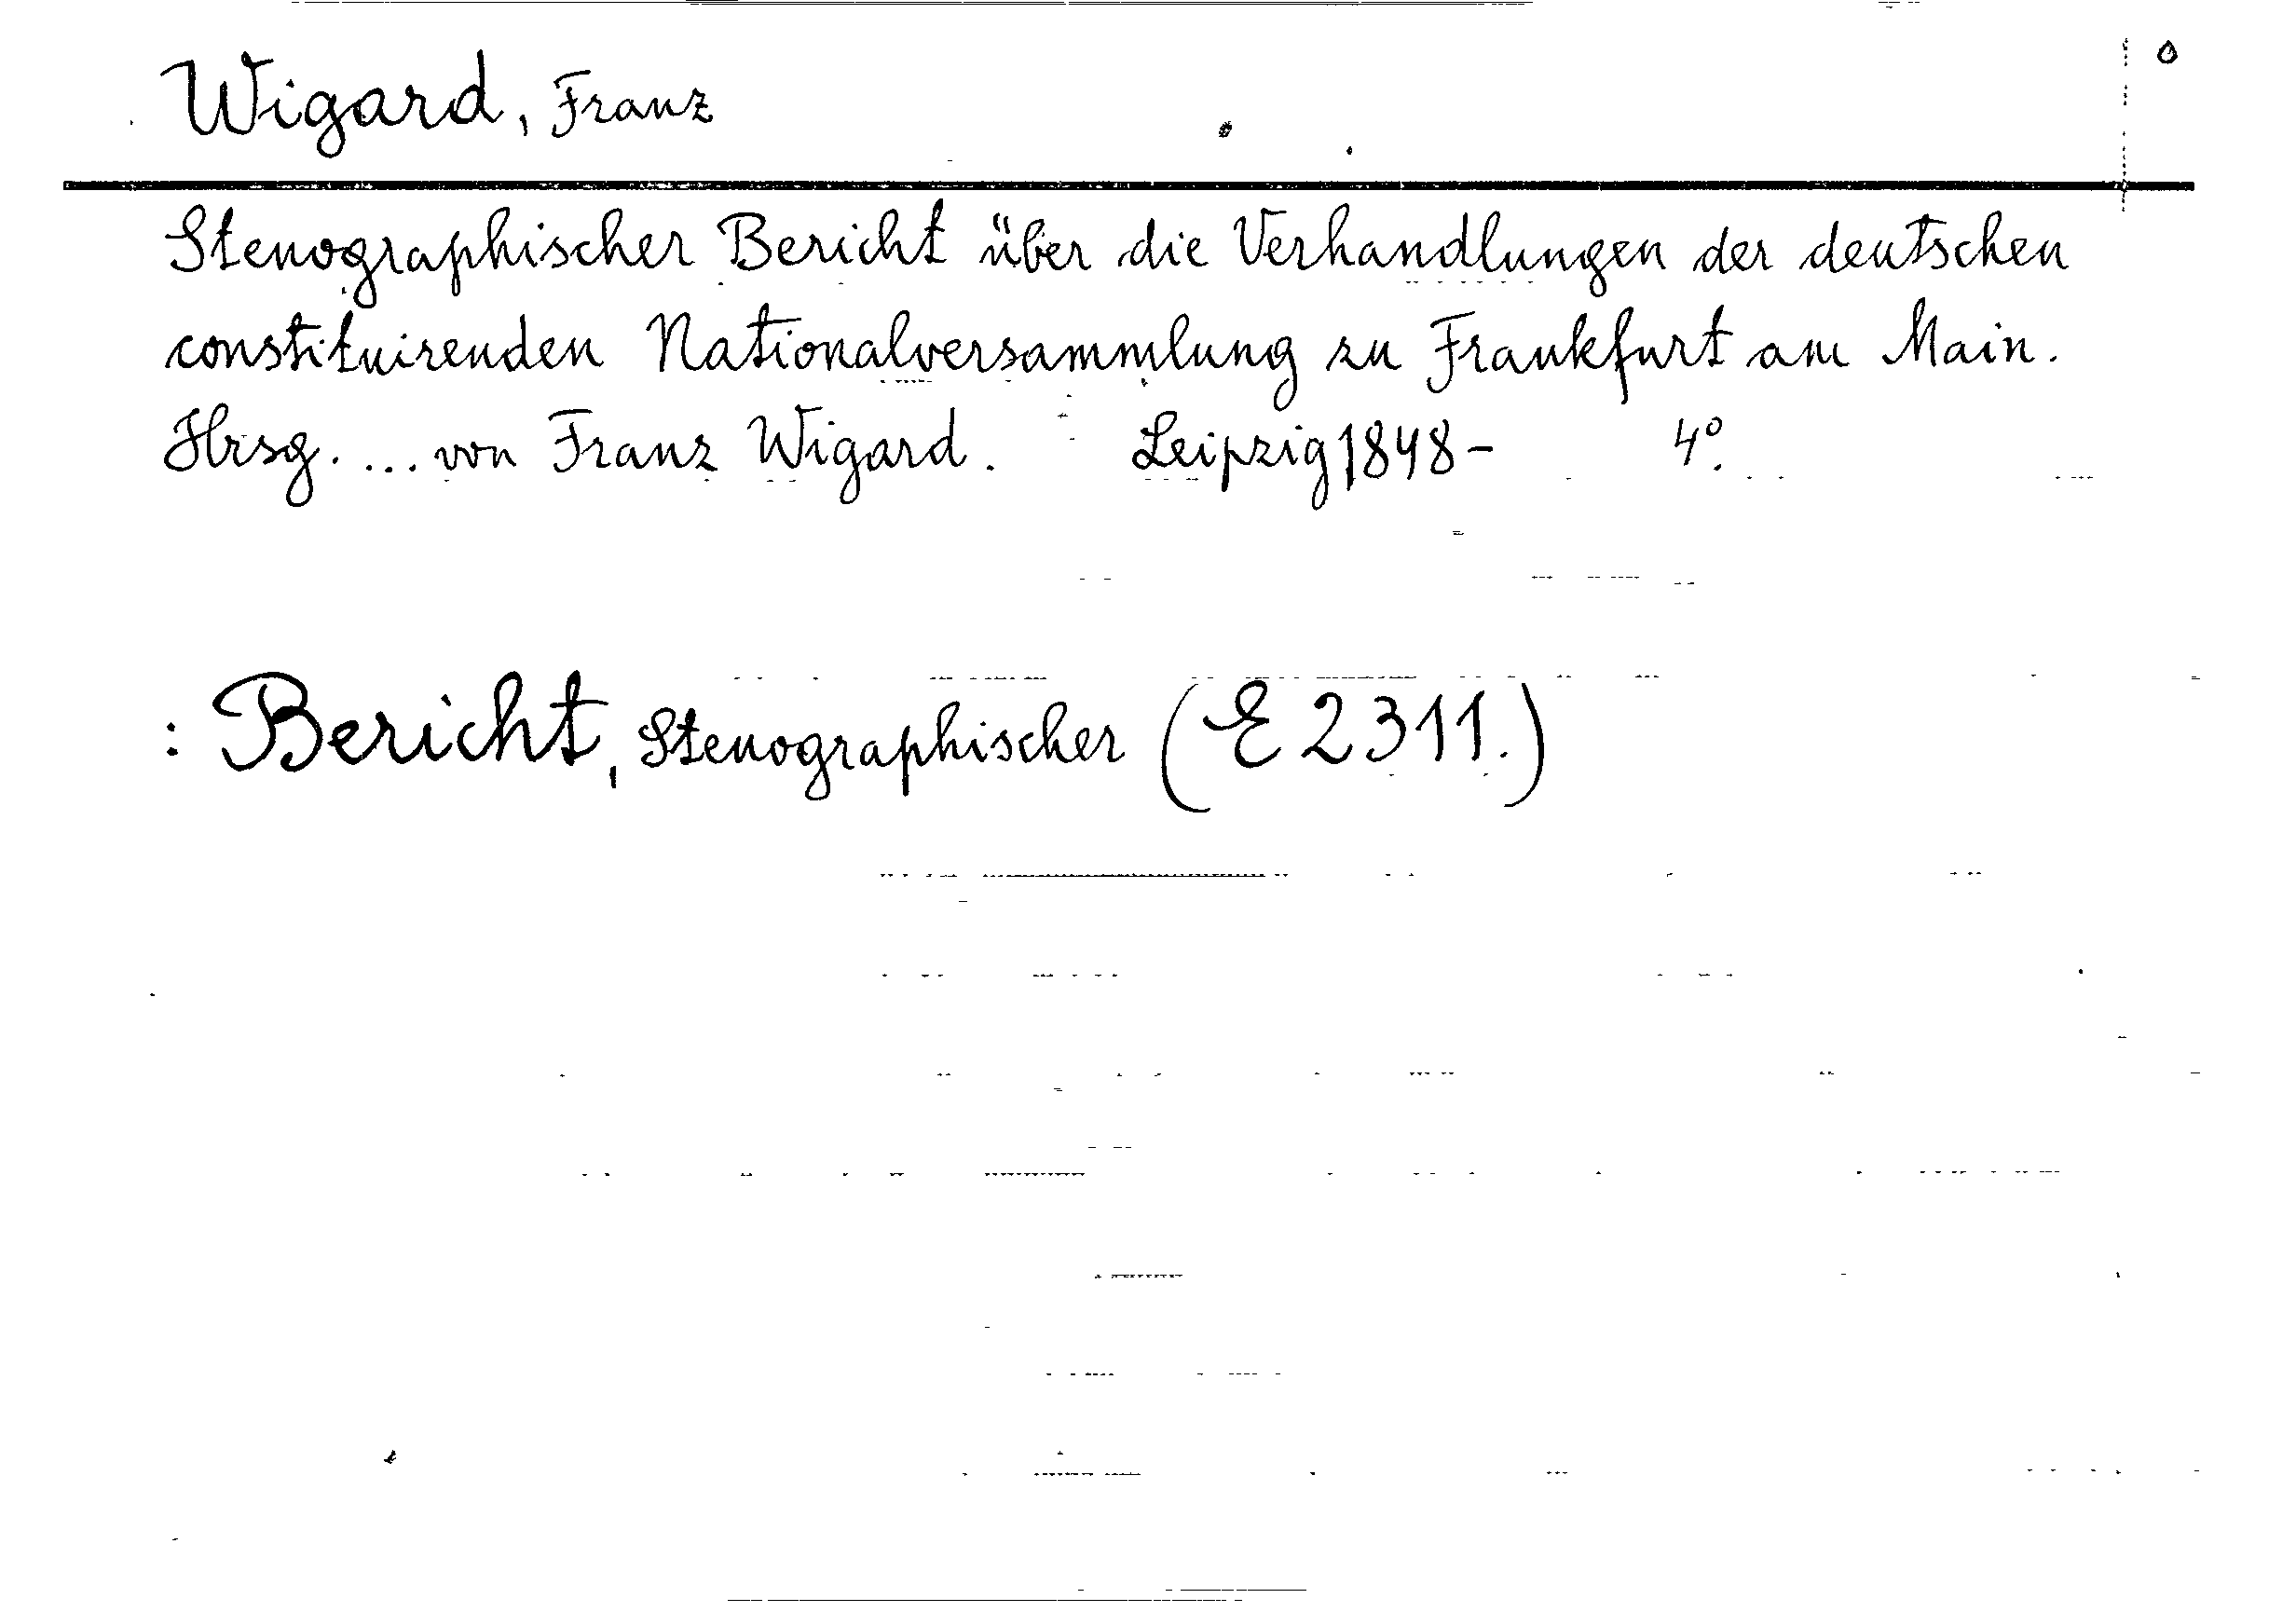 Wigard, Franz
Stenographischer Bericht über die Verhandlungen der deutschen
constituirenden Nationalversammlung zu Frankfurt am Main.
Hrsg. ... von Franz Wigard. Leipzig 1848- 4°.
: Bericht, Stenographischer (E 2311.)